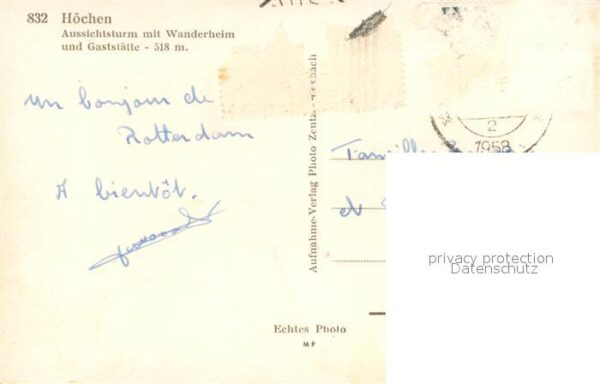 832 Höchen
Aussichtsturm mit Wanderheim
und Gaststätte - 518 m.
un bonjour de
Rotterdam
A bientôt.
Aufnahme-Verlag Photo Zentz
bach
2
1958
et
privacy protection
Datenschutz
Echtes Photo
MP